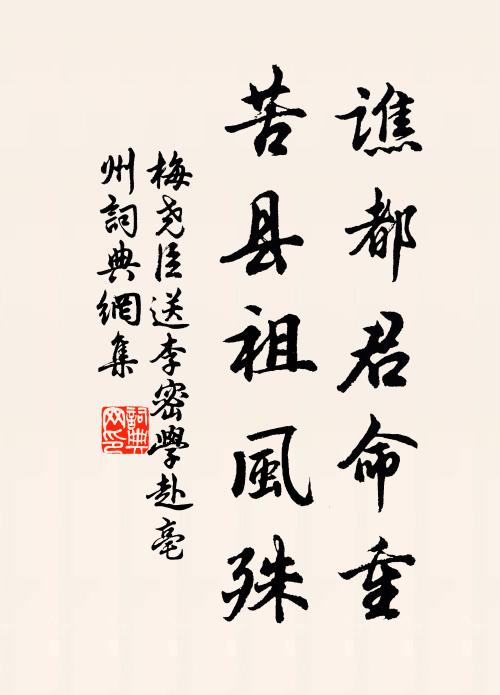 譙都君命重
苦县祖風殊
梅尧臣送李密學赴亳
州詞典網集
詞典
网印